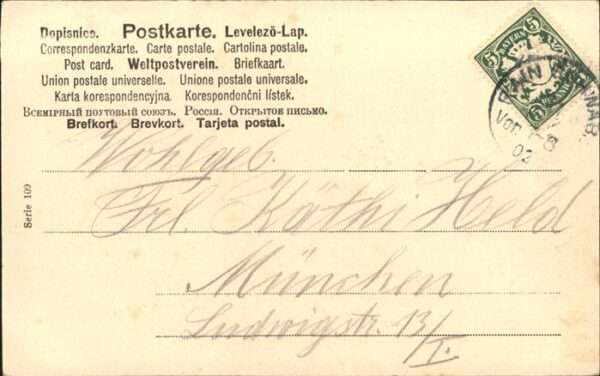 Dopisnice. Postkarte. Levelező-Lap.
Correspondenzkarte. Carte postale. Cartolina postale.
Post card. Weltpostverein. Briefkaart.
Union postale universelle. Unione postale universale.
Karta korespondencyjna. Korespondenční lístek.
Всемірный поутовый союзъ. Россія. Открытое письмо.
Brefkort. Brevkort. Tarjeta postal.
5 5
BAYERN
5
Vorm.
02
Wohlgeb.
Frl. Käthi Held
München
Ludwigstr. 13/I.
Serie 109